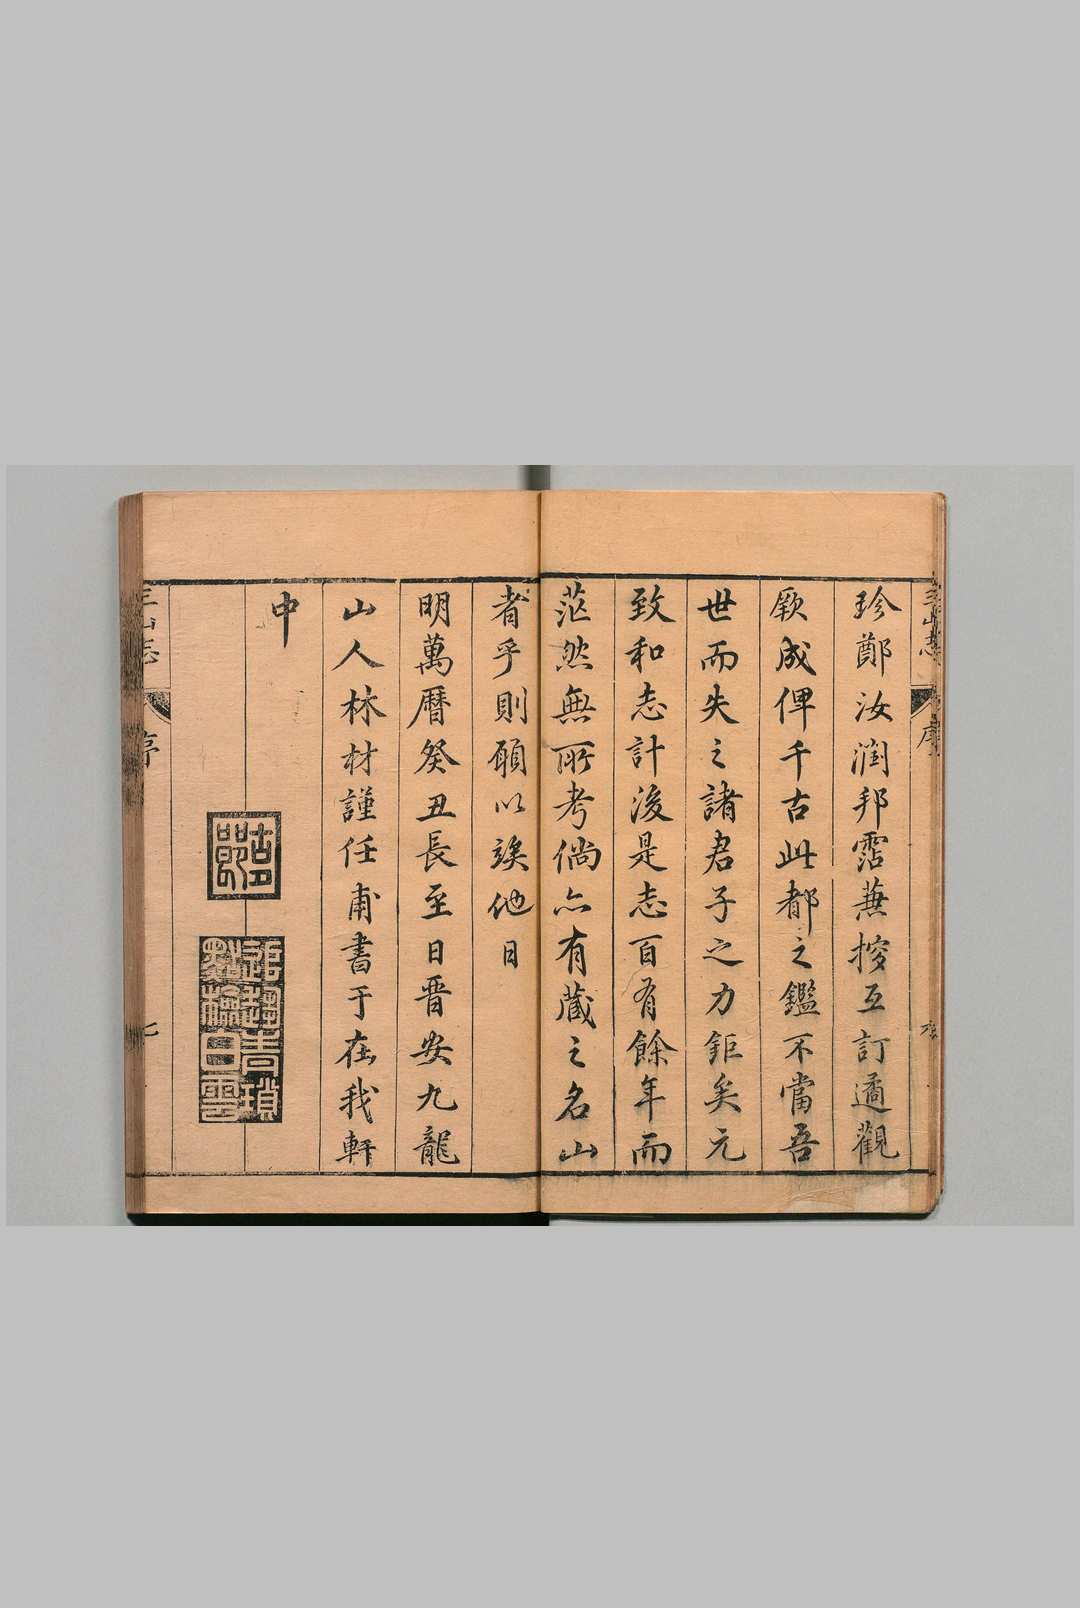 三山志
序
珍鄭汝潤邦霑蕪挍互訂遹觀
厥成俾千古此都之鑑不當吾
世而失之諸君子之力鉅矣元
致和志計後是志百有餘年而
茫然無所考倘亦有蔵之名山
者乎則願以竢他日
明萬曆癸丑長至日晉安九龍
山人林材謹任甫書于在我軒
中
三山志
序
七